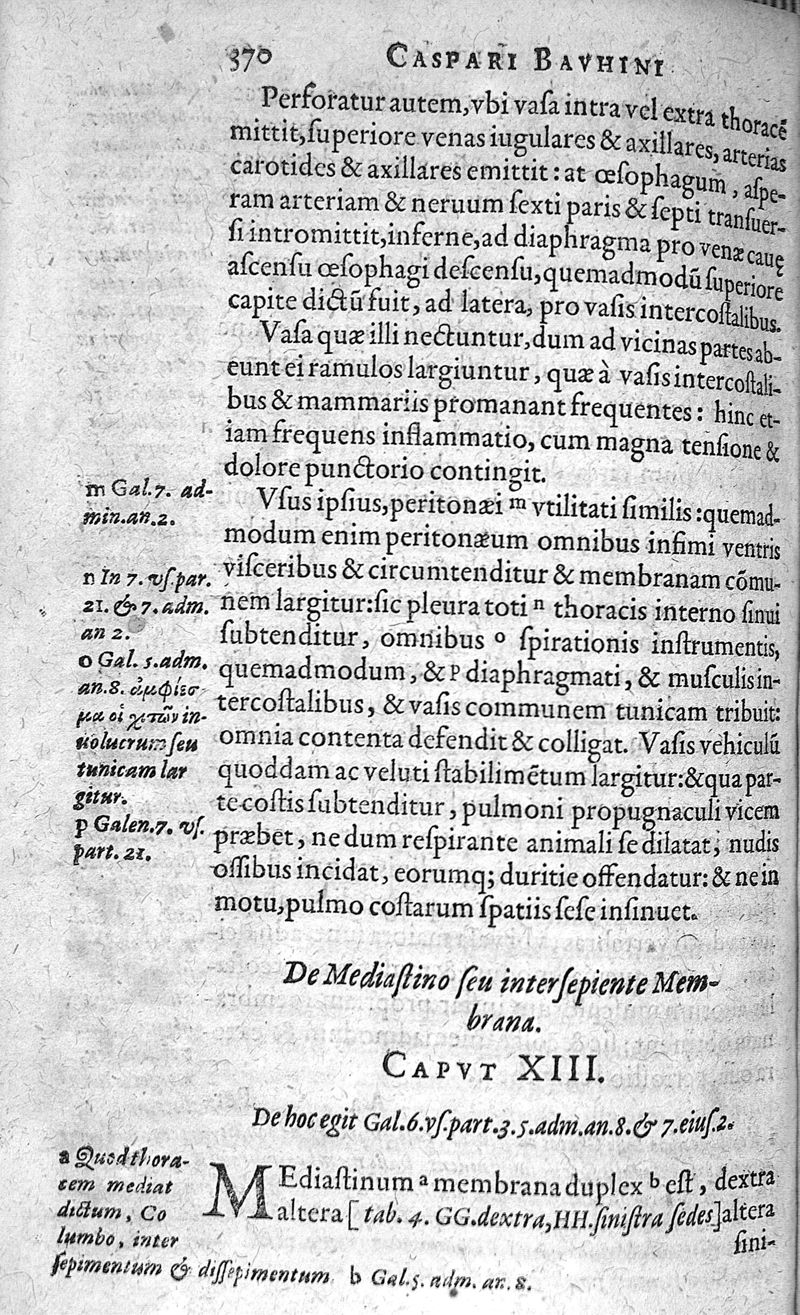 370 CASPARI BAVHINI
Perforatur autem, vbi vaſa intra vel extra thoracẽ
mittit, ſuperiore venas iugulares & axillares, arterias
carotides & axillares emittit: at œſophagum, aſpe-
ram arteriam & neruum ſexti paris & ſepti tranſuer-
ſi intromittit, inferne, ad diaphragma pro venæ cauę
aſcenſu œſophagi deſcenſu, quemadmodũ ſuperiore
capite dictũ fuit, ad latera, pro vaſis intercoſtalibus.
Vaſa quæ illi nectuntur, dum ad vicinas partes ab-
eunt ei ramulos largiuntur, quæ à vaſis intercoſtali-
bus & mammariis promanant frequentes: hinc et-
iam frequens inflammatio, cum magna tenſione &
dolore punctorio contingit.
Vſus ipſius, peritonæi m vtilitati ſimilis: quemad-
modum enim peritonæum omnibus infimi ventris
viſceribus & circumtenditur & membranam cõmu-
nem largitur: ſic pleura toti n thoracis interno ſinui
ſubtenditur, omnibus o ſpirationis inſtrumentis,
quemadmodum, & p diaphragmati, & muſculis in-
tercoſtalibus, & vaſis communem tunicam tribuit:
omnia contenta defendit & colligat. Vaſis vehiculũ
quoddam ac veluti ſtabilimẽtum largitur: & qua par-
te coſtis ſubtenditur, pulmoni propugnaculi vicem
præbet, ne dum reſpirante animali ſe dilatat, nudis
oſſibus incidat, eorumq; duritie offendatur: & ne in
motu, pulmo coſtarum ſpatiis ſeſe inſinuet.
m Gal. 7. ad-
min. an. 2.
n In 7. vſ. par.
21. & 7. adm.
an 2.
o Gal. 5. adm.
an. 8. ἀμφίεσ-
μα οἱ χιτῶν in-
uolucrum ſeu
tunicam lar
gitur.
p Galen. 7. vſ.
part. 21.
De Mediaſtino ſeu interſepiente Mem-
brana.
CAPVT XIII.
De hoc egit Gal. 6. vſ. part. 3. 5. adm. an. 8. & 7. eiuſ. 2.
MEdiaſtinum a membrana duplex b eſt, dextra
altera [ tab. 4. GG. dextra, HH. ſiniſtra ſedes] altera
ſini-
a Quod thora-
cem mediat
dictum, Co
lumbo, inter
ſepimentum & diſſepimentum b Gal. 5. adm. an. 8.